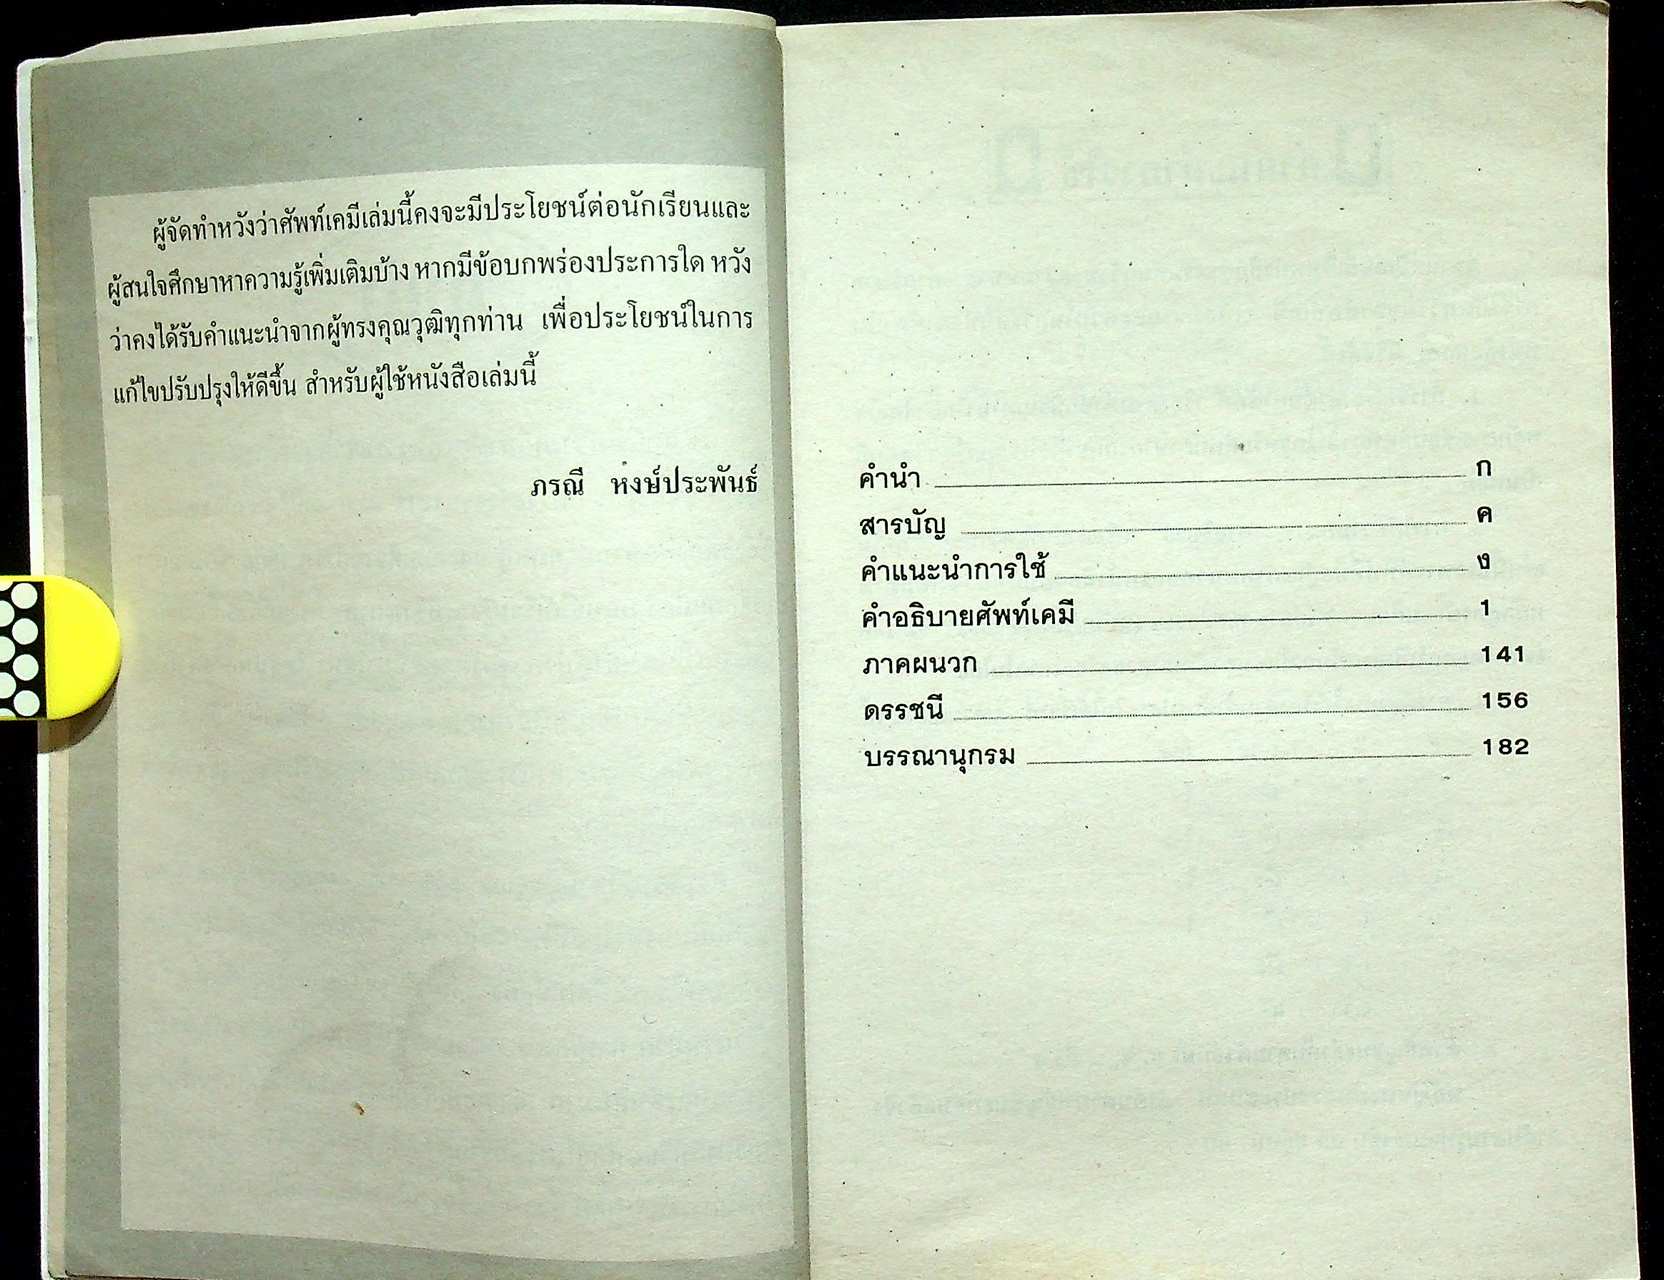 ผู้จัดทำหวังว่าศัพท์เคมีเล่มนี้คงจะมีประโยชน์ต่อนักเรียนและ
ผู้สนใจศึกษาหาความรู้เพิ่มเติมบ้าง หากมีข้อบกพร่องประการใด หวัง
ว่าคงได้รับคำแนะนำจากผู้ทรงคุณวุฒิทุกท่าน เพื่อประโยชน์ในการ
แก้ไขปรับปรุงให้ดีขึ้น สำหรับผู้ใช้หนังสือเล่มนี้
ภรณี หงษ์ประพันธ์
คำนำ ก
สารบัญ ค
คำแนะนำการใช้ ง
คำอธิบายศัพท์เคมี 1
ภาคผนวก 141
ดรรชนี 156
บรรณานุกรม 182